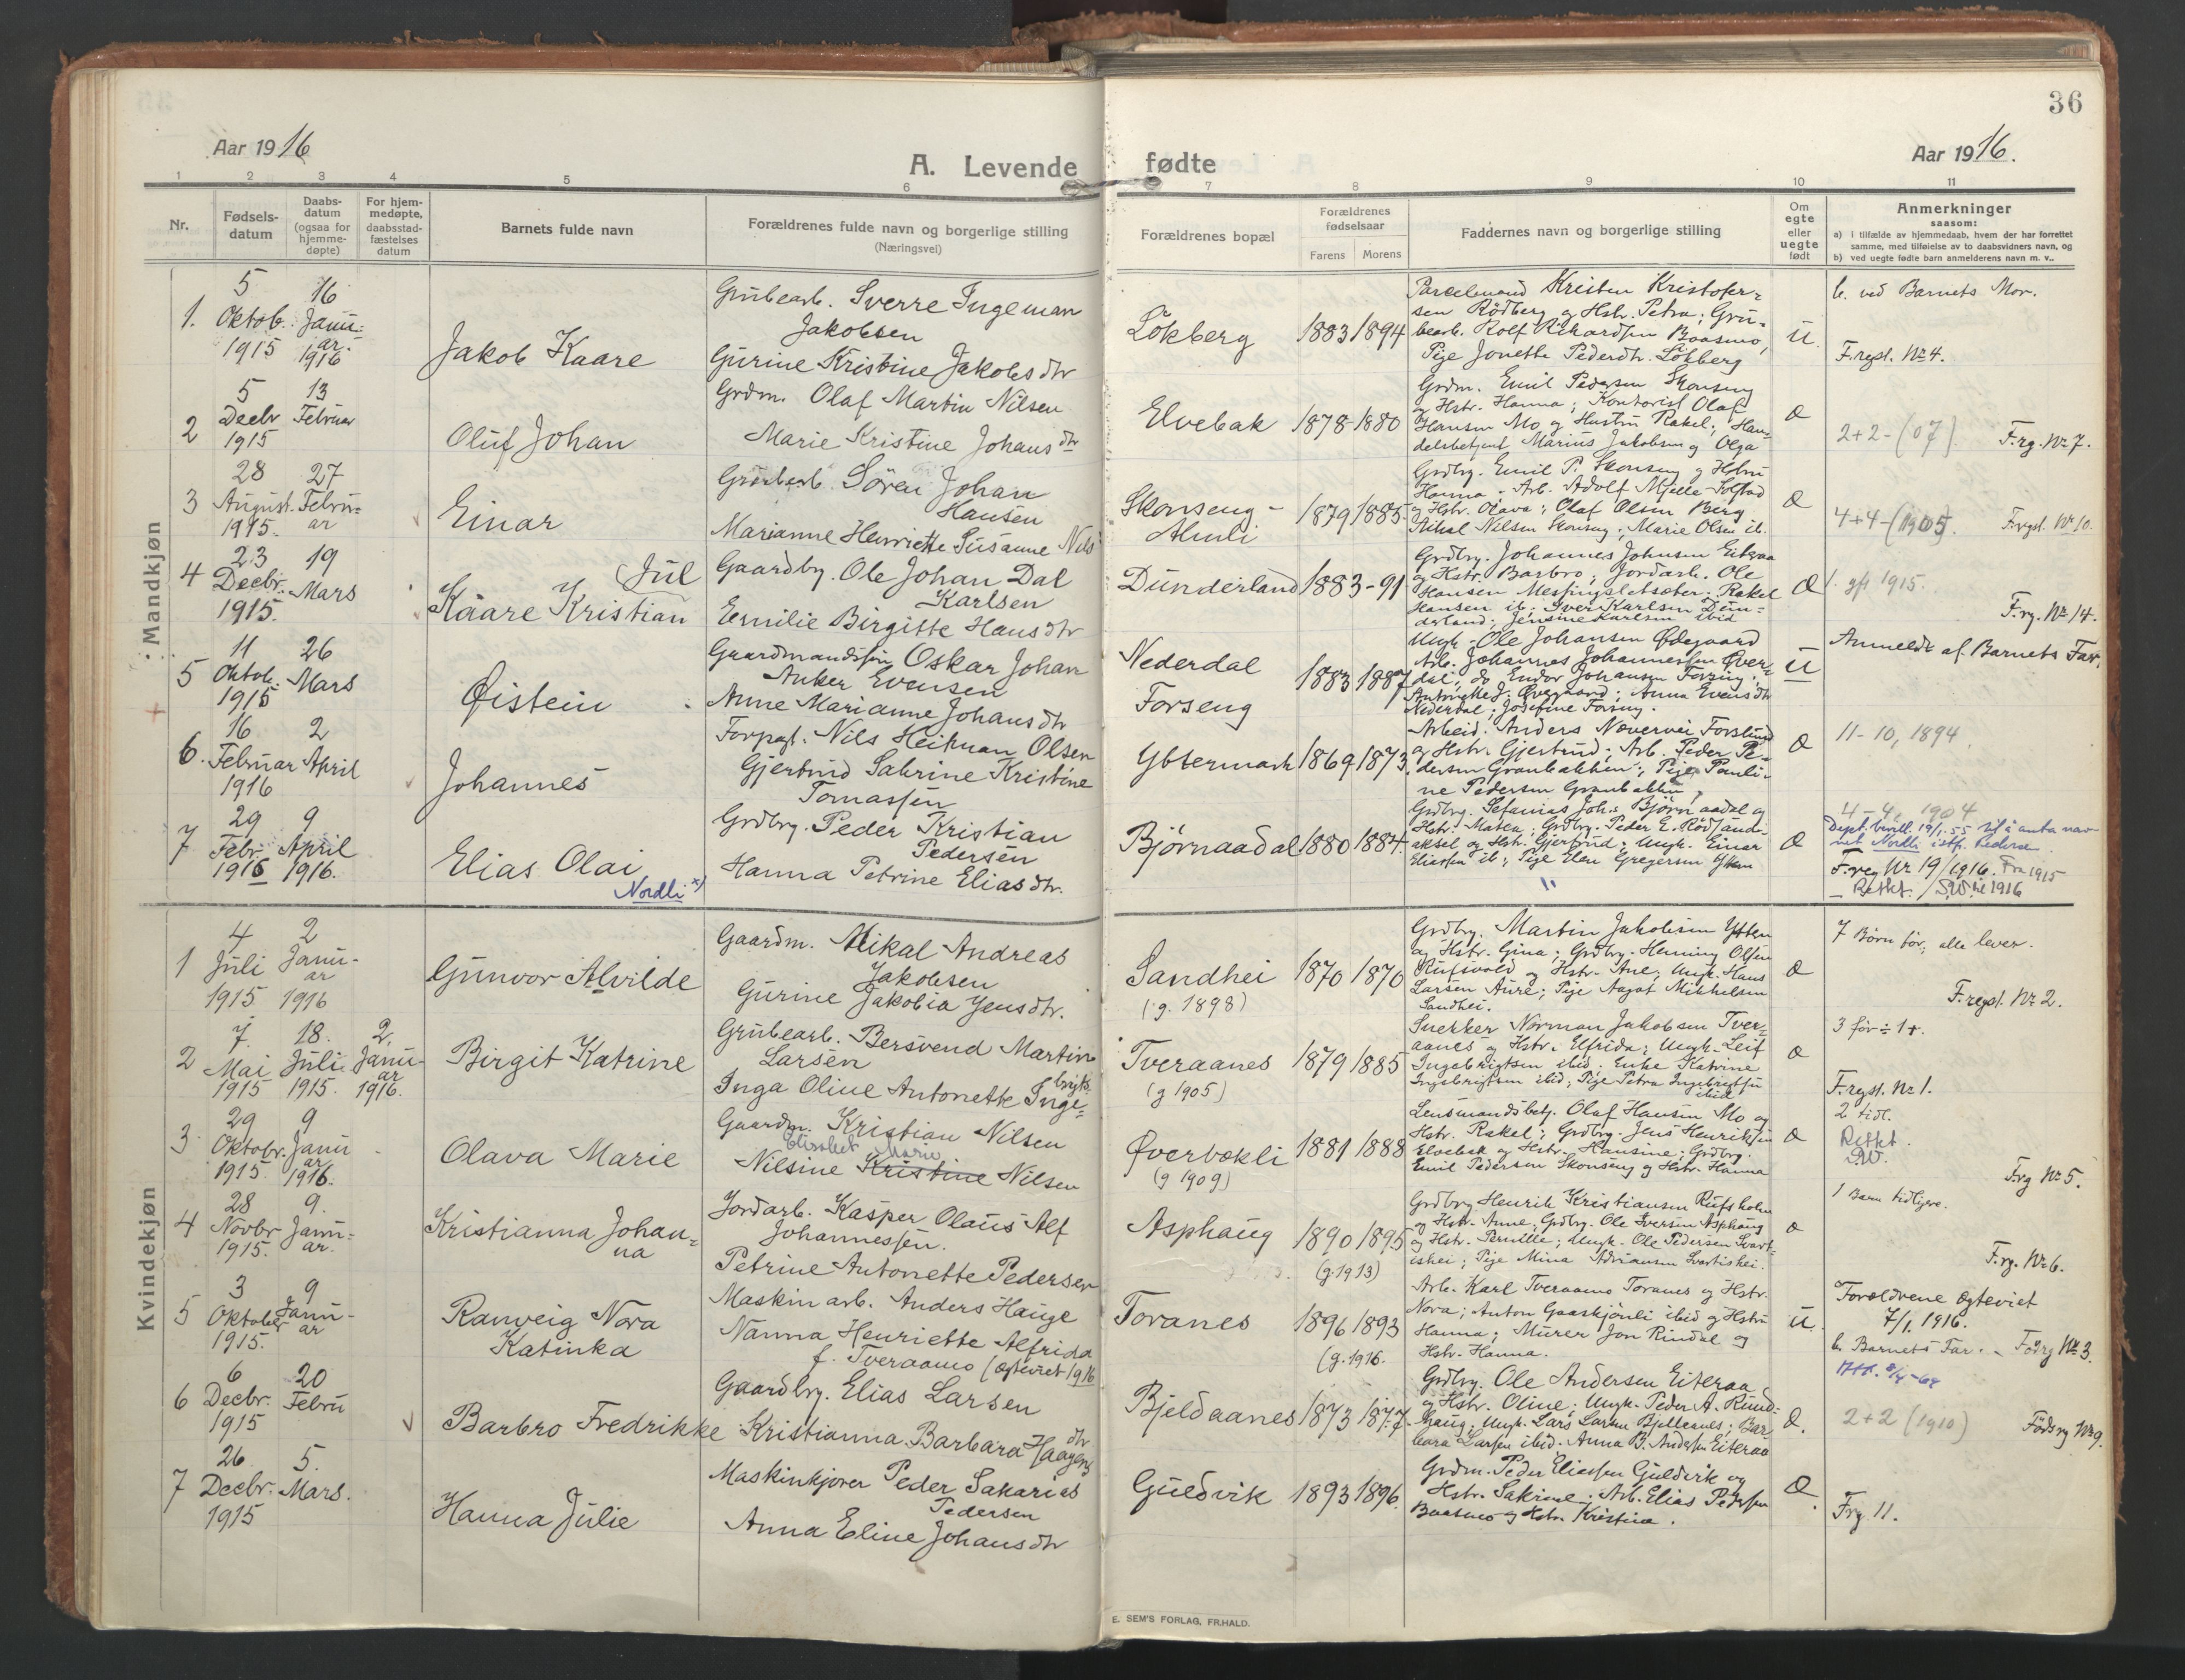 36
Aar 1916
A. Levende fødte
Aar 1916.
1 2 3 4 5 6 7 8 9 10 11
Nr.
Fødsels-
datum
Daabs-
datum
(ogsaa for
hjemme-
døpte)
For hjem-
medøpte,
daabsstad-
fæstelses
datum
Barnets fulde navn
Forældrenes fulde navn og borgerlige stilling
(Næringsvei)
Forældrenes bopæl
Forældrenes
fødselsaar
Farens Morens
Faddernes navn og borgerlige stilling
Om
egte
eller
uegte
født
Anmerkninger
saasom:
a) i tilfælde av hjemmedaab, hvem der har forrettet
samme, med tilføielse av to daabsvidners navn, og
b) ved uegte fødte barn anmelderens navn m. v..
Mandkjøn
1. 5 Oktob. 1915
16 Janu-
ar 1916
Jakob Kaare
Grubearb. Sverre Ingeman
Jakobsen
Gurine Kristine Jakobsdtr
Løkberg
1883 1894
Parcelmand Kristen Kristofer-
sen Rödberg og Hstr. Petra; Gru-
bearb. Rolf Rikardsen Baasmo,
Pige Jonetta Pedersdtr. Løkberg
u.
b. ved Barnets Mor.
F.regst. Nr 4.
2 5 Decbr 1915
13 Februar
Oluf Johan
Grdm. Olaf Martin Nilsen
Marie Kristine Johansdtr
Elvebak
1878-1880
Grdm. Emil Pedersen Skonseng
og Hstr. Hanna; Kontorist Olaf
Hansen Mo og Hustru Rakel; Han-
delsbetjent Marius Jakobsen og Olga
Æ
2+2-(07)
F.rg. Nr 7.
3 28 August. 1915.
27 Febru-
ar
Einar
Søren Johan
Hansen
Marianne Henriette Susanne Nils
Skonseng-
Almli
1879 1885.
Grdbrg. Emil P. Skonseng og Hstru
Hanna; Arb. Adolf Mjelle-Solstad
og Hstr. Olava; Olaf Olsen Berg
Mikal Nilsen Skonseng; Marie Olsen ib.
Æ
4+4-(1905).
F.rgst. Nr 10.
4 23 Decbr. 1915.
19 Mars
(Jul
Kaare Kristian
Gaardbr. Ole Johan Dal
Karlsen
Emilie Birgitte Hansdtr
Dunderland
1883-91
Grdbrg. Johannes Johnsen Eiteraa
og Hstr. Barbro; Jordarb. Ole
Hansen Messingsletsæter; Rakel
Hansen ib; Iver Karlsen Dun-
derland; Jensine Karlsen ibid
Æ
1. gft 1915.
F.rg. Nr 14.
5 11 Oktob. 1915
26 Mars
Øistein
Gaardmandssøn Oskar Johan
Anker Evensen
Anne Marianne Johansdtr
Nederdal
Forseng
1883 1887
Ungk. Ole Johansen Ødegaard
Arb. Johannes Johannessen Øver-
dal; do Endor Johansen Forseng;
Antonette J. Øvergaard; Anna Evensdtr
Nederdal; Josefine Forseng.
u
Anmeldt af Barnets Far.
6. 16 Februar 1916
2 April
Johannes
Forpagt. Nils Heitman Olsen
Gjertrud Sabrine Kristine
Tomassen
Yttermark
1869 1873.
Arbeid. Anders Nævervei Forslund
og Hstr. Gjertrud; Arb. Peder Pe-
dersen Granbakken; Pige Pauli-
ne Pedersen Granbakken
Æ
11-10, 1894
7 29 Febr. 1916
9 April 1916.
Elias Olai
Nordli x)
Grdbrg. Peder Kristian
Pedersen
Hanna Petrine Eliasdtr.
Bjørnaadal
1880 1884.
Grdbrg. Sefanias Johs. Bjørnaadal og
Hstr. Matea; Grdbrg. Peder E. Rødsand-
aksel og Hstr. Gjertrud; Ungk. Einar
Eliassen ib; Pige Elen Gregersen Yttern
Æ
4-4, 1904
Dept. bevill. 19/1-55 til å anta nav-
net Nordli istf. Pedersen
F.reg Nr 19/1916. Fra 1915
Rettet. / SW til 1916
Kvindekjøn
1 4 Juli 1915
2 Janu-
ar 1916
Gunvor Alvilde
Gaardm. Mikal Andreas
Jakobsen
Gurine Jakobia Jensdtr.
Sandhei
(g. 1898)
1870 1870
Grdbrg. Martin Jakobsen Yttern
og Hstr. Gina; Grdbrg. Henning Olsen
Rufsvold og Hstr. Ane; Ungk. Hans
Larsen Aure; Pige Aagot Mikkelsen
Sandhei.
Æ
7 Børn før; alle lever.
F.regst. Nr 2.
2 7. Mai 1915
18. Juli 1915.
2. Janu-
ar 1916.
Birgit Katrine
Grubearb. Bersvend Martin
Larsen
Inga Oline Antonette Inge-
brigts
Tveraanes
(g 1905)
1879 1885
Snekker Norman Jakobsen Tver-
aanes og Hstr. Elfrida; Ungk. Leif
Ingebrigtsen ibid; Enke Katrine
Ingebrigtsen ibid; Pige Petra Ingebrigtsen
ibid
Æ
3 før ÷ 1+.
F.regst. Nr 1.
3 29 Oktobr. 1915
9 Janu
ar 1916.
Olava Marie
Gaardm. Kristian Nilsen
Elisabet Marie
Nilsine Kristine Nilsen
Øverbækli
(g 1909)
1881 1888
Lensmandsbetj. Olaf Hansen Mo og
Hstr. Rakel; Grdbrg. Jens Henriksen
Elvebak og Hstr. Hansine; Grdbrg.
Emil Pedersen Skonseng og Hstr. Hanna
Æ
2 tidl.
Rettet.
SW.
F.rg Nr 5.
4 28 Novbr 1915.
9. Janu-
ar.
Kristianna Johan-
na
Jordarb. Kasper Olaus Alf
Johannessen.
Petrine Antonette Pedersen
Asphaug
1890 1895
(g. 1913)
Grdbrg Henrik Kristiansen Rufsholm
og Hstr. Anne; Grdbrg. Ole Iversen Asphaug
og Hstr. Pernille; Ungk. Ole Pedersen Svart-
ishei; Pige Mina Adriansen Svartishei.
Æ
1 Barn tidligere.
F.rg. Nr 6.
5 3 Oktober 1915.
9 Janu-
ar
Ranveig Nora
Katinka
Maskinarb. Anders Hauge
Nanna Henriette Alfrida
f. Tveraamo (Ægteviet 1916
Toranes
1896 1893
(g. 1916.
Arb. Karl Tveraamo Toranes og Hstr.
Nora; Anton Gaaskjønli ibid og Hstru
Hanna; Murer Jon Rindal og
Hstr. Hanna.
u.
Forældrene Ægteviet
7/1 1916.
b. Barnets Far. - Fdrg Nr 3.
6 6 Decbr. 1915
20 Febru
Barbro Fredrikke
Gaardbrg. Elias Larsen
Kristianna Barbara Haagens
dtr
Bjeldaanes
1873 1877.
Grdbrg. Ole Andersen Eiteraa
og Hstr. Oline; Ungk. Peder A. Rund-
haug; Ungk. Lars Larsen Bjelleanes; Bar-
bara Larsen ibid. Anna B. Andersen Eiteraa
Æ.
2+2 (1910)
Fødsrg Nr 9.
7 26 Decbr. 1915
5. Mars.
Hanna Julie
Maskinkjører Peder Sakarias
Pedersen
Anna Eline Johansdtr
Guldvik
1893 1896.
Grdm. Peder Eliassen Guldvik og
Hstr. Sakrine; Arb. Elias Pedersen
Baasmo og Hstr. Kristina.
Æ.
Frg 11.
E. SEM'S FORLAG, FR.HALD.